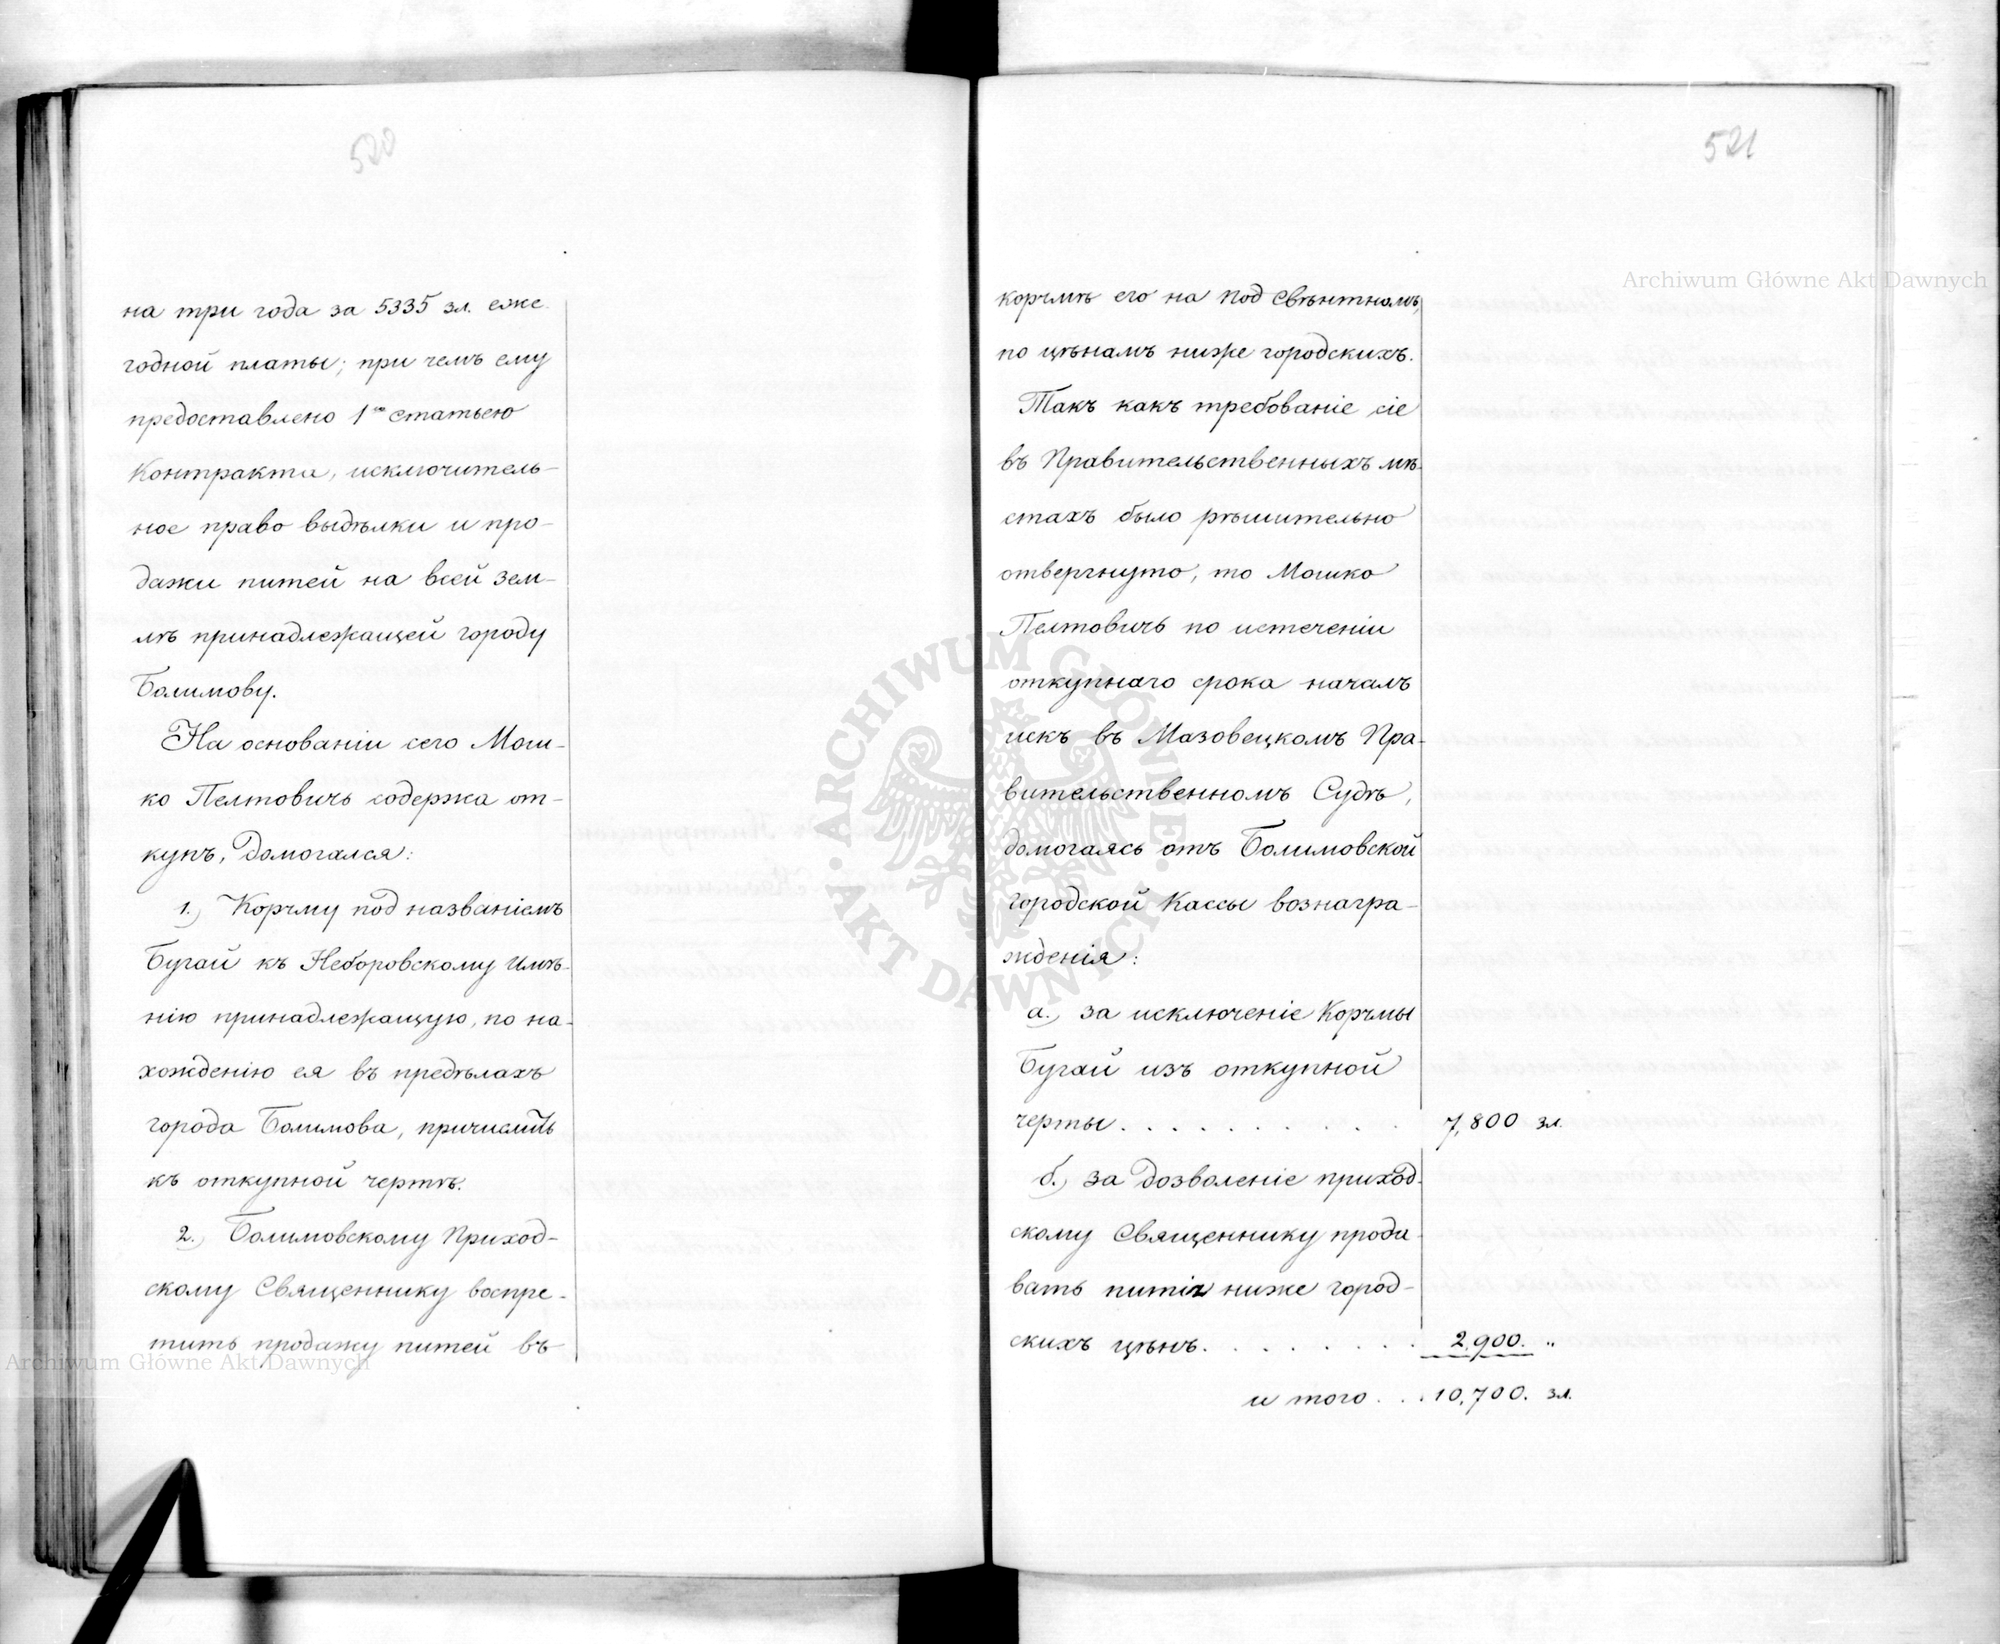 520
на три года за 5335 зл. еже
годной платы; при чемъ ему
предоставлено 1ою статьею
Контракта, исключитель-
ное право выдѣлки и про-
дажи питей на всей зем-
лѣ принадлежащей городу
Болимову.
На основаніи сего Мош-
ко Пелтовичъ содержа от-
купъ, домогался:
1.) Корчму под названіемъ
Бугай къ Неборовскому имѣ-
нію принадлежащую, по на-
хожденію ея въ предѣлахъ
города Болимова, причислить
къ откупной чертѣ.
2.) Болимовскому Приход-
скому Священнику воспре-
тить продажу питей въ
521
корчмѣ его на Под Свѣнтномъ,
по цѣнамъ ниже городскихъ.
Такъ какъ требованіе сіе
въ Правительственныхъ мѣ-
стахъ было рѣшительно
отвергнуто, то Мошко
Пелтовичъ по истеченіи
откупнаго срока началъ
искъ въ Мазовецкомъ Пра-
вительственномъ Судѣ,
домогаясь отъ Болимовской
городской Кассы вознагра-
жденія:
а.) за исключеніе Корчмы
Бугай изъ откупной
черты . . . . . . . . . . 7,800 зл.
б.) за дозволеніе приход-
скому Священнику прода-
вать питія ниже город-
скихъ цѣнъ. . . . . . . . 2,900. "
и того . . . 10,700. зл.
Archiwum Główne Akt Dawnych
Archiwum Główne Akt Dawnych
ARCHIWUM GŁÓWNE · AKT DAWNYCH ·